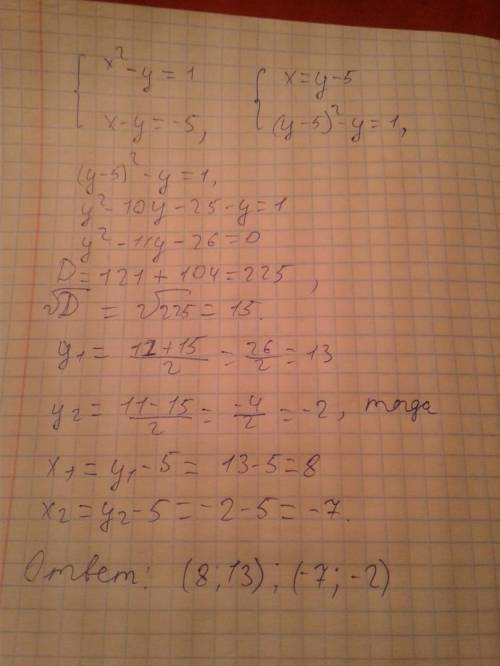 x² - y = 1    x = y - 5
x - y = -5,    (y - 5)² - y = 1,
(y - 5)² - y = 1,
y² - 10y - 25 - y = 1
y² - 11y - 26 = 0
D = 121 + 104 = 225,
√D = √225 = 15.
y₁ = (11 + 15)/2 = 26/2 = 13
y₂ = (11 - 15)/2 = -4/2 = -2, тогда
x₁ = y₁ - 5 = 13 - 5 = 8
x₂ = y₂ - 5 = -2 - 5 = -7.
Ответ: (8; 13); (-7; -2)